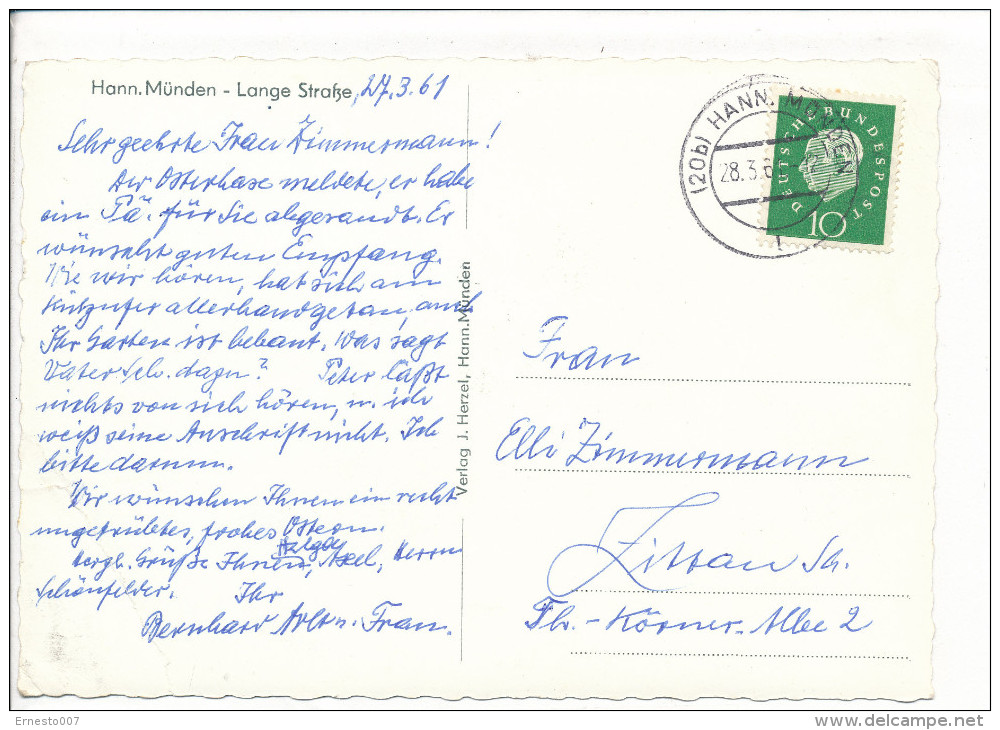 Hann.Münden - Lange Straße, 27.3.61
Sehr geehrte Frau Zimmermann!
Der Osterhase meldete, er habe
ein Pä. für Sie abgesandt. Er
wünscht guten Empfang.
Wie wir hören, hat sich am
allerhand getan, auch
Ihr Garten ist bebaut. Was sagt
Vater Sch. dazu? Peter läßt
nichts von sich hören, u. ich
weiß seine Anschrift nicht. Ich
bitte darum.
Wir wünschen Ihnen ein recht
ungetrübtes, frohes Ostern.
Herzl. Grüße Ihnen, Axel, Herrn
Schönfelder. Ihr
Bernhard Arlt u. Frau.
Verlag J. Herzel, Hann.Münden
(20b) HANN. MÜNDEN
28.3.61
DEUTSCHE BUNDESPOST
10
Frau
Elli Zimmermann
Zittau Sa.
Th.-Körner-Allee 2
Ernesto007
delcampe.net